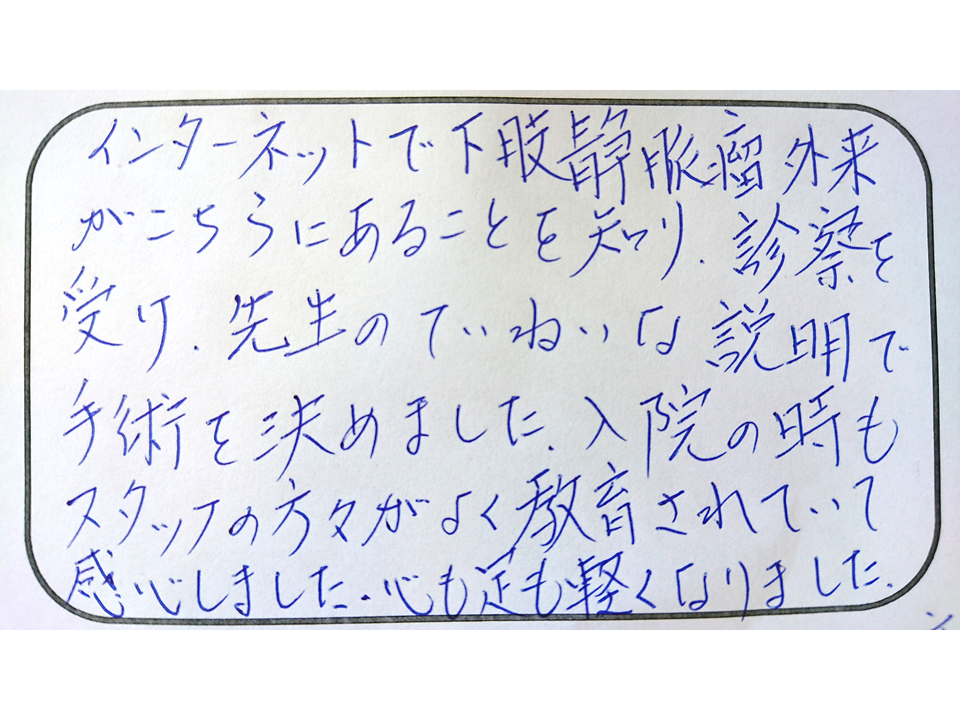 インターネットで下肢静脈瘤外来
がこちらにあることを知り、診察を
受け、先生のていねいな説明で
手術を決めました。入院の時も
スタッフの方々がよく教育されていて
感心しました。心も足も軽くなりました。